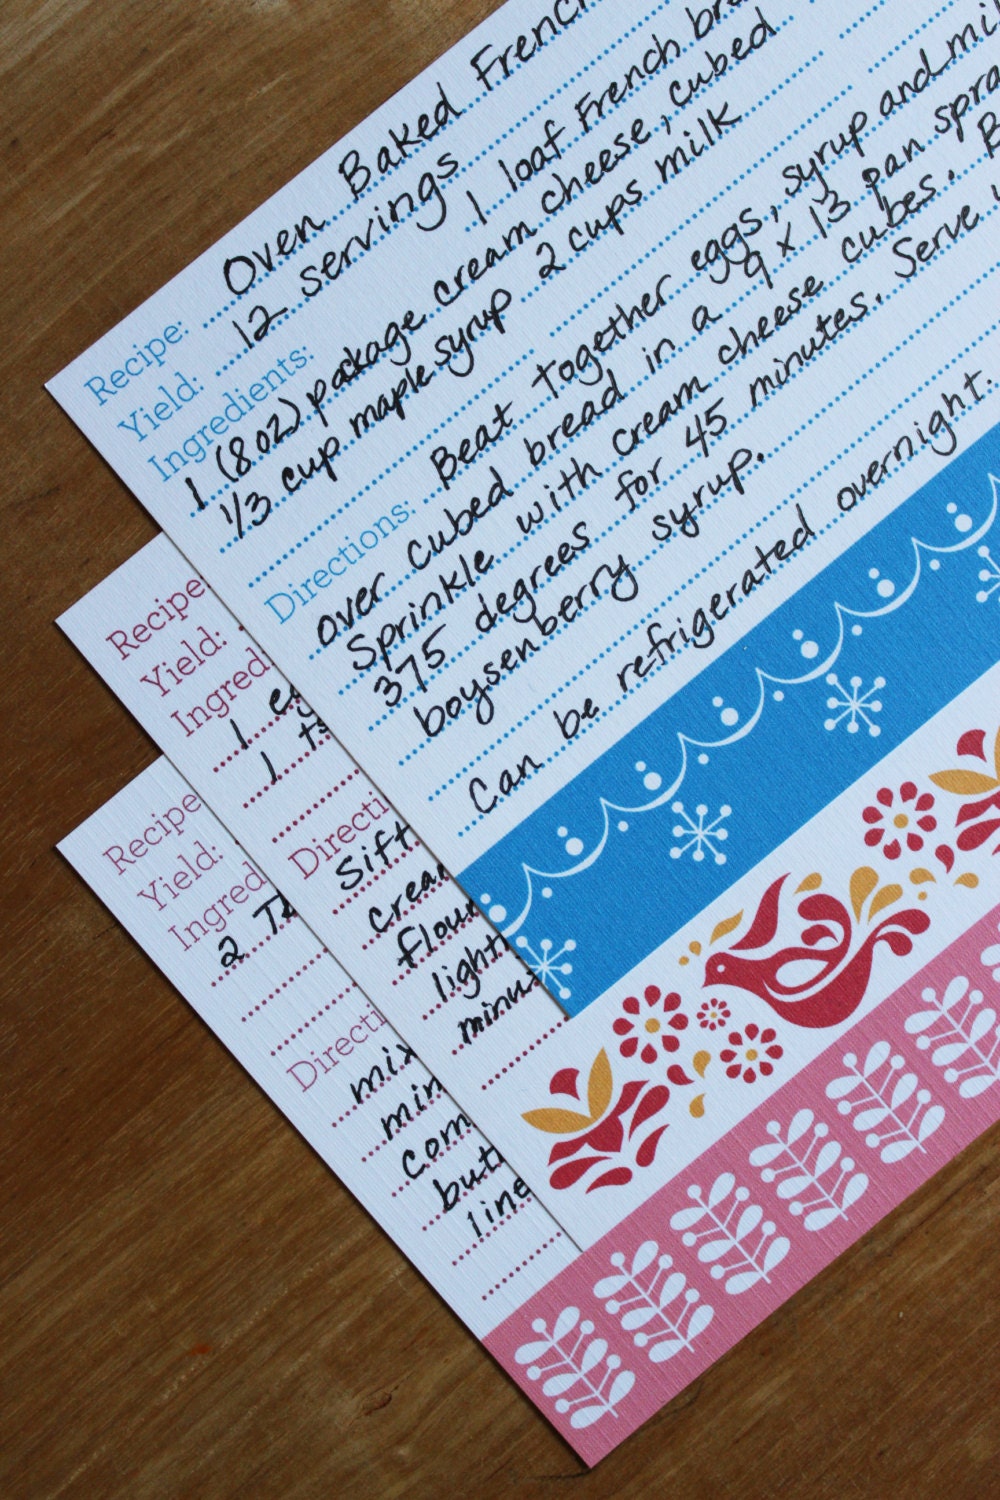 Recipe: Oven Baked French
Yield: 12 servings
Ingredients: 1 loaf French
1 (8 oz) package cream cheese, cubed
1/3 cup maple syrup 2 cups milk
Directions: Beat together eggs, syrup and
over cubed bread in a 9 x 13 pan
Sprinkle with cream cheese cubes.
375 degrees for 45 minutes. Serve
boysenberry syrup.
Can be refrigerated overnight.
Recipe
Yield:
Ingred
1
1
Directi
Sift
light
Recipe
Yield:
Ingred
2
Directi
mix
min
line